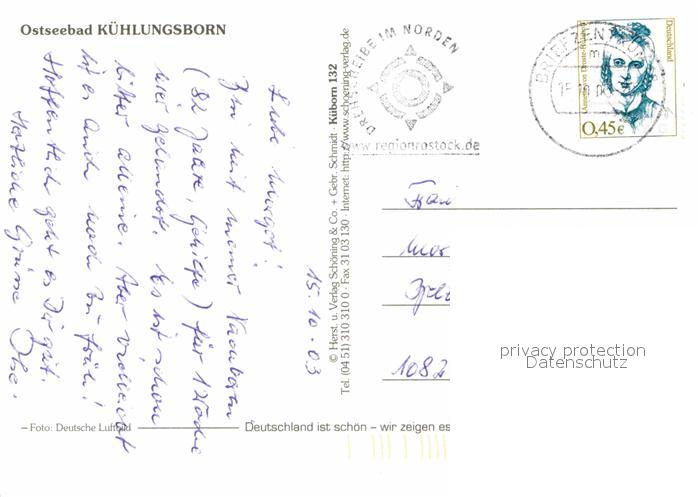 Ostseebad KÜHLUNGSBORN
15.10.03
Liebe Margot!
Bin mit meiner Nachbarin
(82 Jahre, Gehilfe) für 1 Woche
hier gelandet. Es ist schon
bitter alleine. Aber vielleicht
ist es auch noch zu früh!
Hoffentlich geht es Dir gut.
Herzliche Grüsse
– Foto: Deutsche Luftbild
© Herst. u. Verlag Schöning & Co. + Gebr. Schmidt · Küborn 132
Tel. (04 51) 310 310 0 · Fax 31 03 130 · Internet: http://www.schoening-verlag.de
Deutschland ist schön – wir zeigen es
DREHSCHEIBE IM NORDEN
www.regionrostock.de
BRIEFZENTRUM
Annette von Droste-Hülshoff
Deutschland
0,45 €
Frau
Mar
1082
privacy protection
Datenschutz